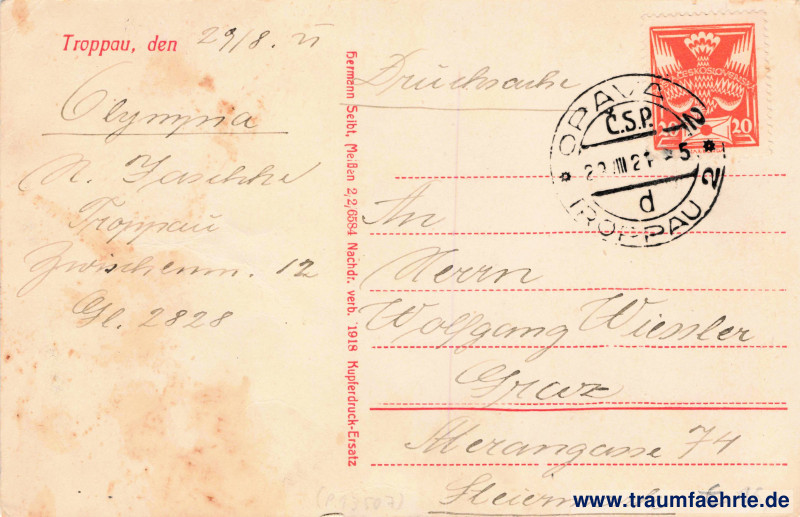 Troppau, den 29/8. 21
Olympia
N. Jaschke
Troppau
Zwischenm. 12
Gl. 2828
Hermann Seibt, Meißen 2,2,6584 Nachdr. verb. 1918 Kupferdruck-Ersatz
Drucksache
ČESKOSLOVENSKÁ
20 20
OPAVA 2
Č.S.P.
VIII 21 5
d
TROPPAU 2
An
Herrn
Wolfgang Wiessler
Graz
Merangasse 74
(P13507)
www.traumfaehrte.de